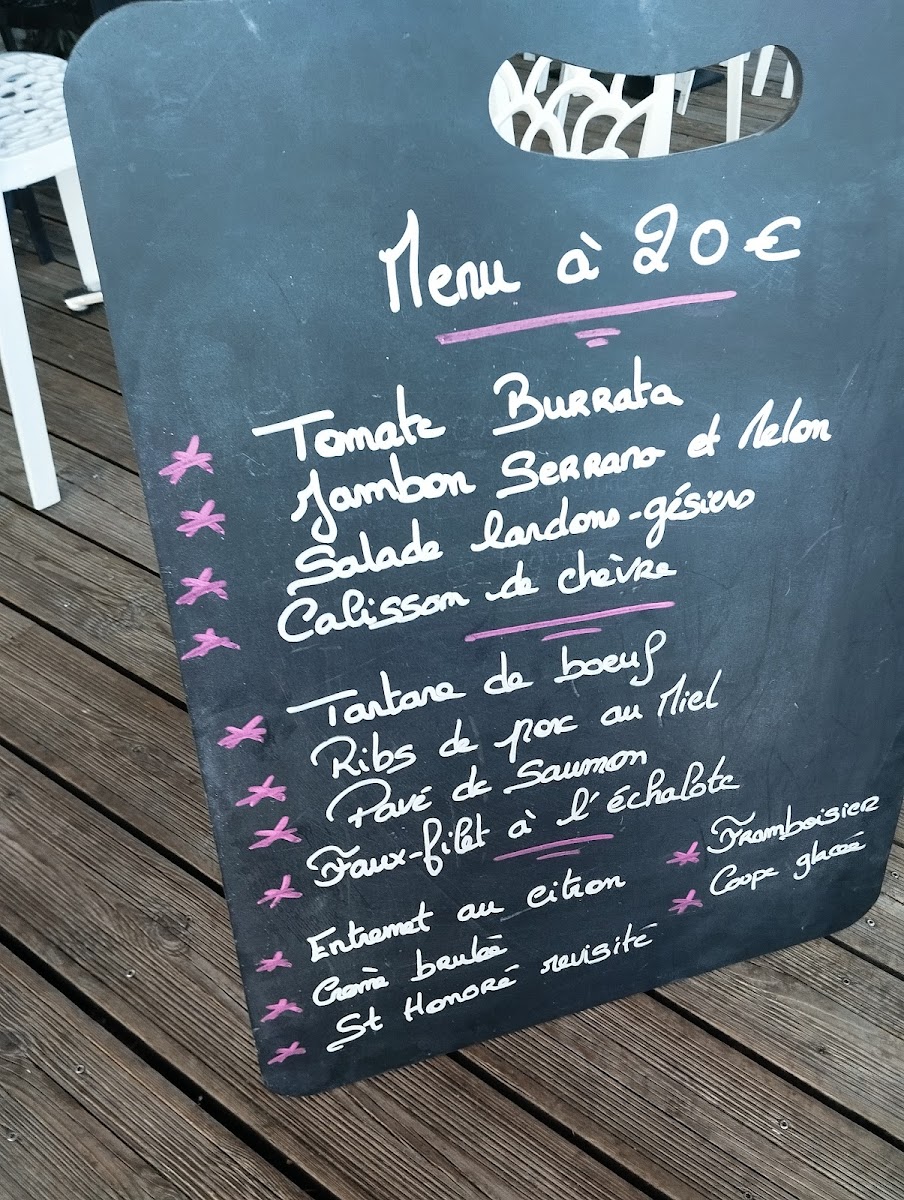 Menu à 20€
Tomate Burrata
Jambon Serrano et Melon
Salade lardons-gésiers
Calisson de chèvre
Tartare de boeuf
Ribs de porc au Miel
Pavé de Saumon
Faux-filet à l'échalote
Entremet au citron
Crème brulée
St Honoré revisité
Framboisier
Coupe glacée